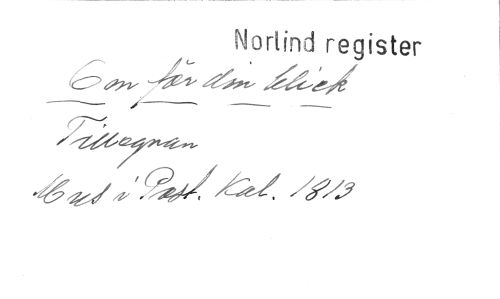 Norlind register
Om för din blick
Tillegnan
Mus i Poet. Kal. 1813